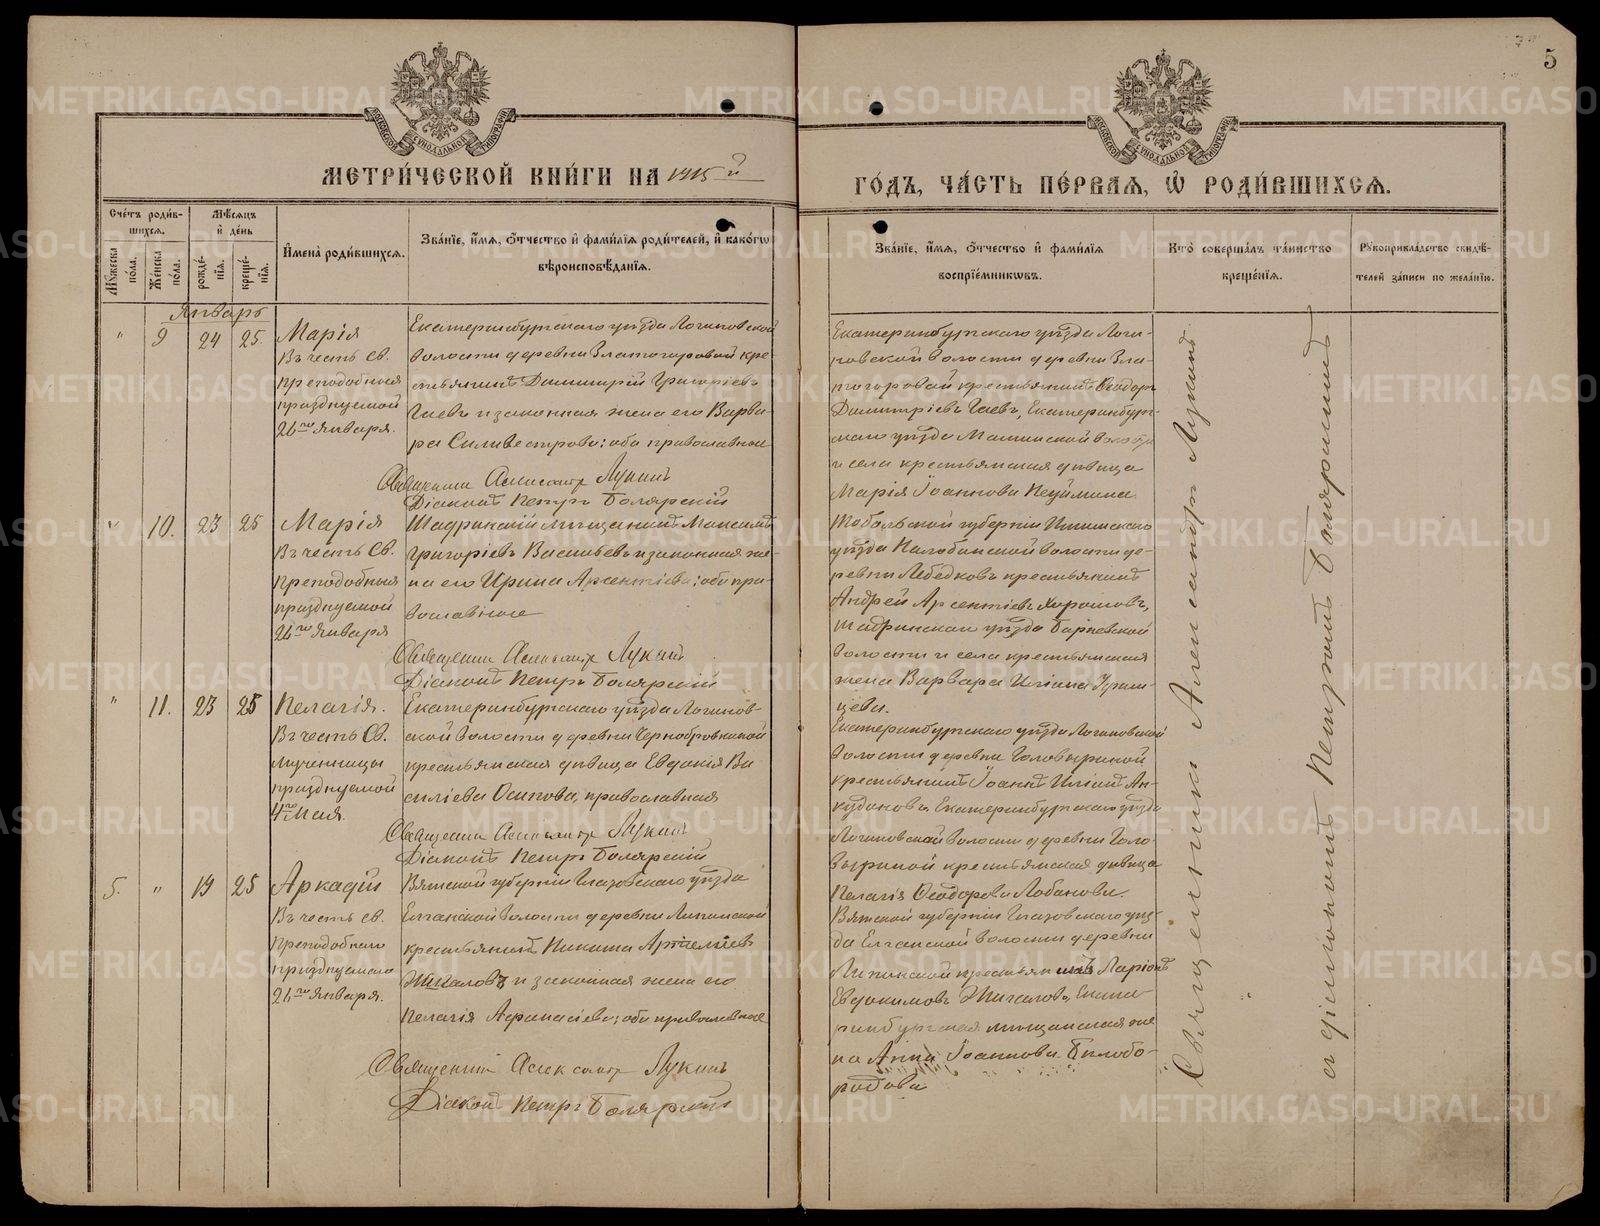 5
МЕТРИ́ЧЕСКОЙ КНИ́ГИ НА 1915 й
ГО́ДЪ, ЧА́СТЬ ПЕ́РВАЯ, Ѽ РОДИ́ВШИХСЯ.
Сче́тъ роди́в-
шихся.
Мѣ́сяцъ
и де́нь
Мꙋ́жеска
по́ла.
Же́нска
по́ла.
рожде́-
нїя.
креще́-
нїя.
Имена̀ роди́вшихся.
Зва́нїе, и́мя, ѻ҆́тчество и҆ фами́лїя роди́телей, и҆ како́гѡ
вѣроисповѣ́данїя.
Зва́нїе, и́мя, ѻ҆́тчество и҆ фами́лїя
воспрїе́мникѡвъ.
Кто̀ соверша́лъ та́инство
креще́нїя.
Рꙋкоприкла́дство свидѣ́-
телей за́писи по жела́нїю.
Январь
" 9 24 25
Марія
Въ честь Св.
преподобныя
празднуемой
26го Января.
Екатеринбургскаго уѣзда Логиновской
волости деревни Златогоровой кре-
стьянинъ Димитрій Григоріевъ
Гаевъ и законная жена его Варва-
ра Силивестрова; оба православные
Священникъ Александръ Лукинъ
Діаконъ Петръ Боярскій
Екатеринбургскаго уѣзда Логи-
новской волости деревни Зла-
тогоровой крестьянинъ Ѳеодоръ
Димитріевъ Гаевъ, Екатеринбург-
скаго уѣзда волости
и села крестьянская дѣвица
Марія Іоаннова
" 10. 23 25
Марія
Въ честь Св.
преподобныя
празднуемой
26го Января
Шадринскій мѣщанинъ Максимъ
Григоріевъ Васильевъ и законная же-
на его Ирина Арсентіева; оба пра-
вославные
Священникъ Александръ Лукинъ
Діаконъ Петръ Боярскій
Тобольской губерніи Ишимскаго
уѣзда волости де-
ревни Лебедковъ крестьянинъ
Андрей Арсентіевъ Хорошовъ,
Шадринскаго уѣзда
волости и села крестьянская
жена Варвара
" 11. 23 25
Пелагія.
Въ честь Св.
мученицы
празднуемой
4го Мая.
Екатеринбургскаго уѣзда Логинов-
ской волости деревни Чернобровкиной
крестьянская дѣвица Евдокія Ва
силіева Осипова, православная
Священникъ Александръ Лукинъ
Діаконъ Петръ Боярскій
Екатеринбургскаго уѣзда Логиновской
волости деревни Головыриной
крестьянинъ Іоаннъ Ан-
кудиновъ, Екатеринбургскаго уѣзда
Логиновской волости деревни Голо-
выриной крестьянская дѣвица
Пелагія Ѳеодорова Лобанова.
5. " 19 25
Аркадій
Въ честь св.
преподобнаго
празднуемаго
26го Января.
Вятской губерніи Глазовскаго уѣзда
Елганской волости деревни Липинской
крестьянинъ Никита Артеміевъ
Жигаловъ и законная жена его
Пелагія Афанасіева; оба православные
Священникъ Александръ Лукинъ
Діаконъ Петръ Боярскій
Вятской губерніи Глазовскаго уѣз-
да Елганской волости деревни
Липинской крестьянинъ Ларіонъ
Евдокимовъ Жигаловъ, Екате-
ринбургская мѣщанская же
на Анна Іоаннова Бѣлобо-
родова
Священникъ Александръ Лукинъ
съ діакономъ Петромъ Боярскимъ
METRIKI.GASO-URAL.RU